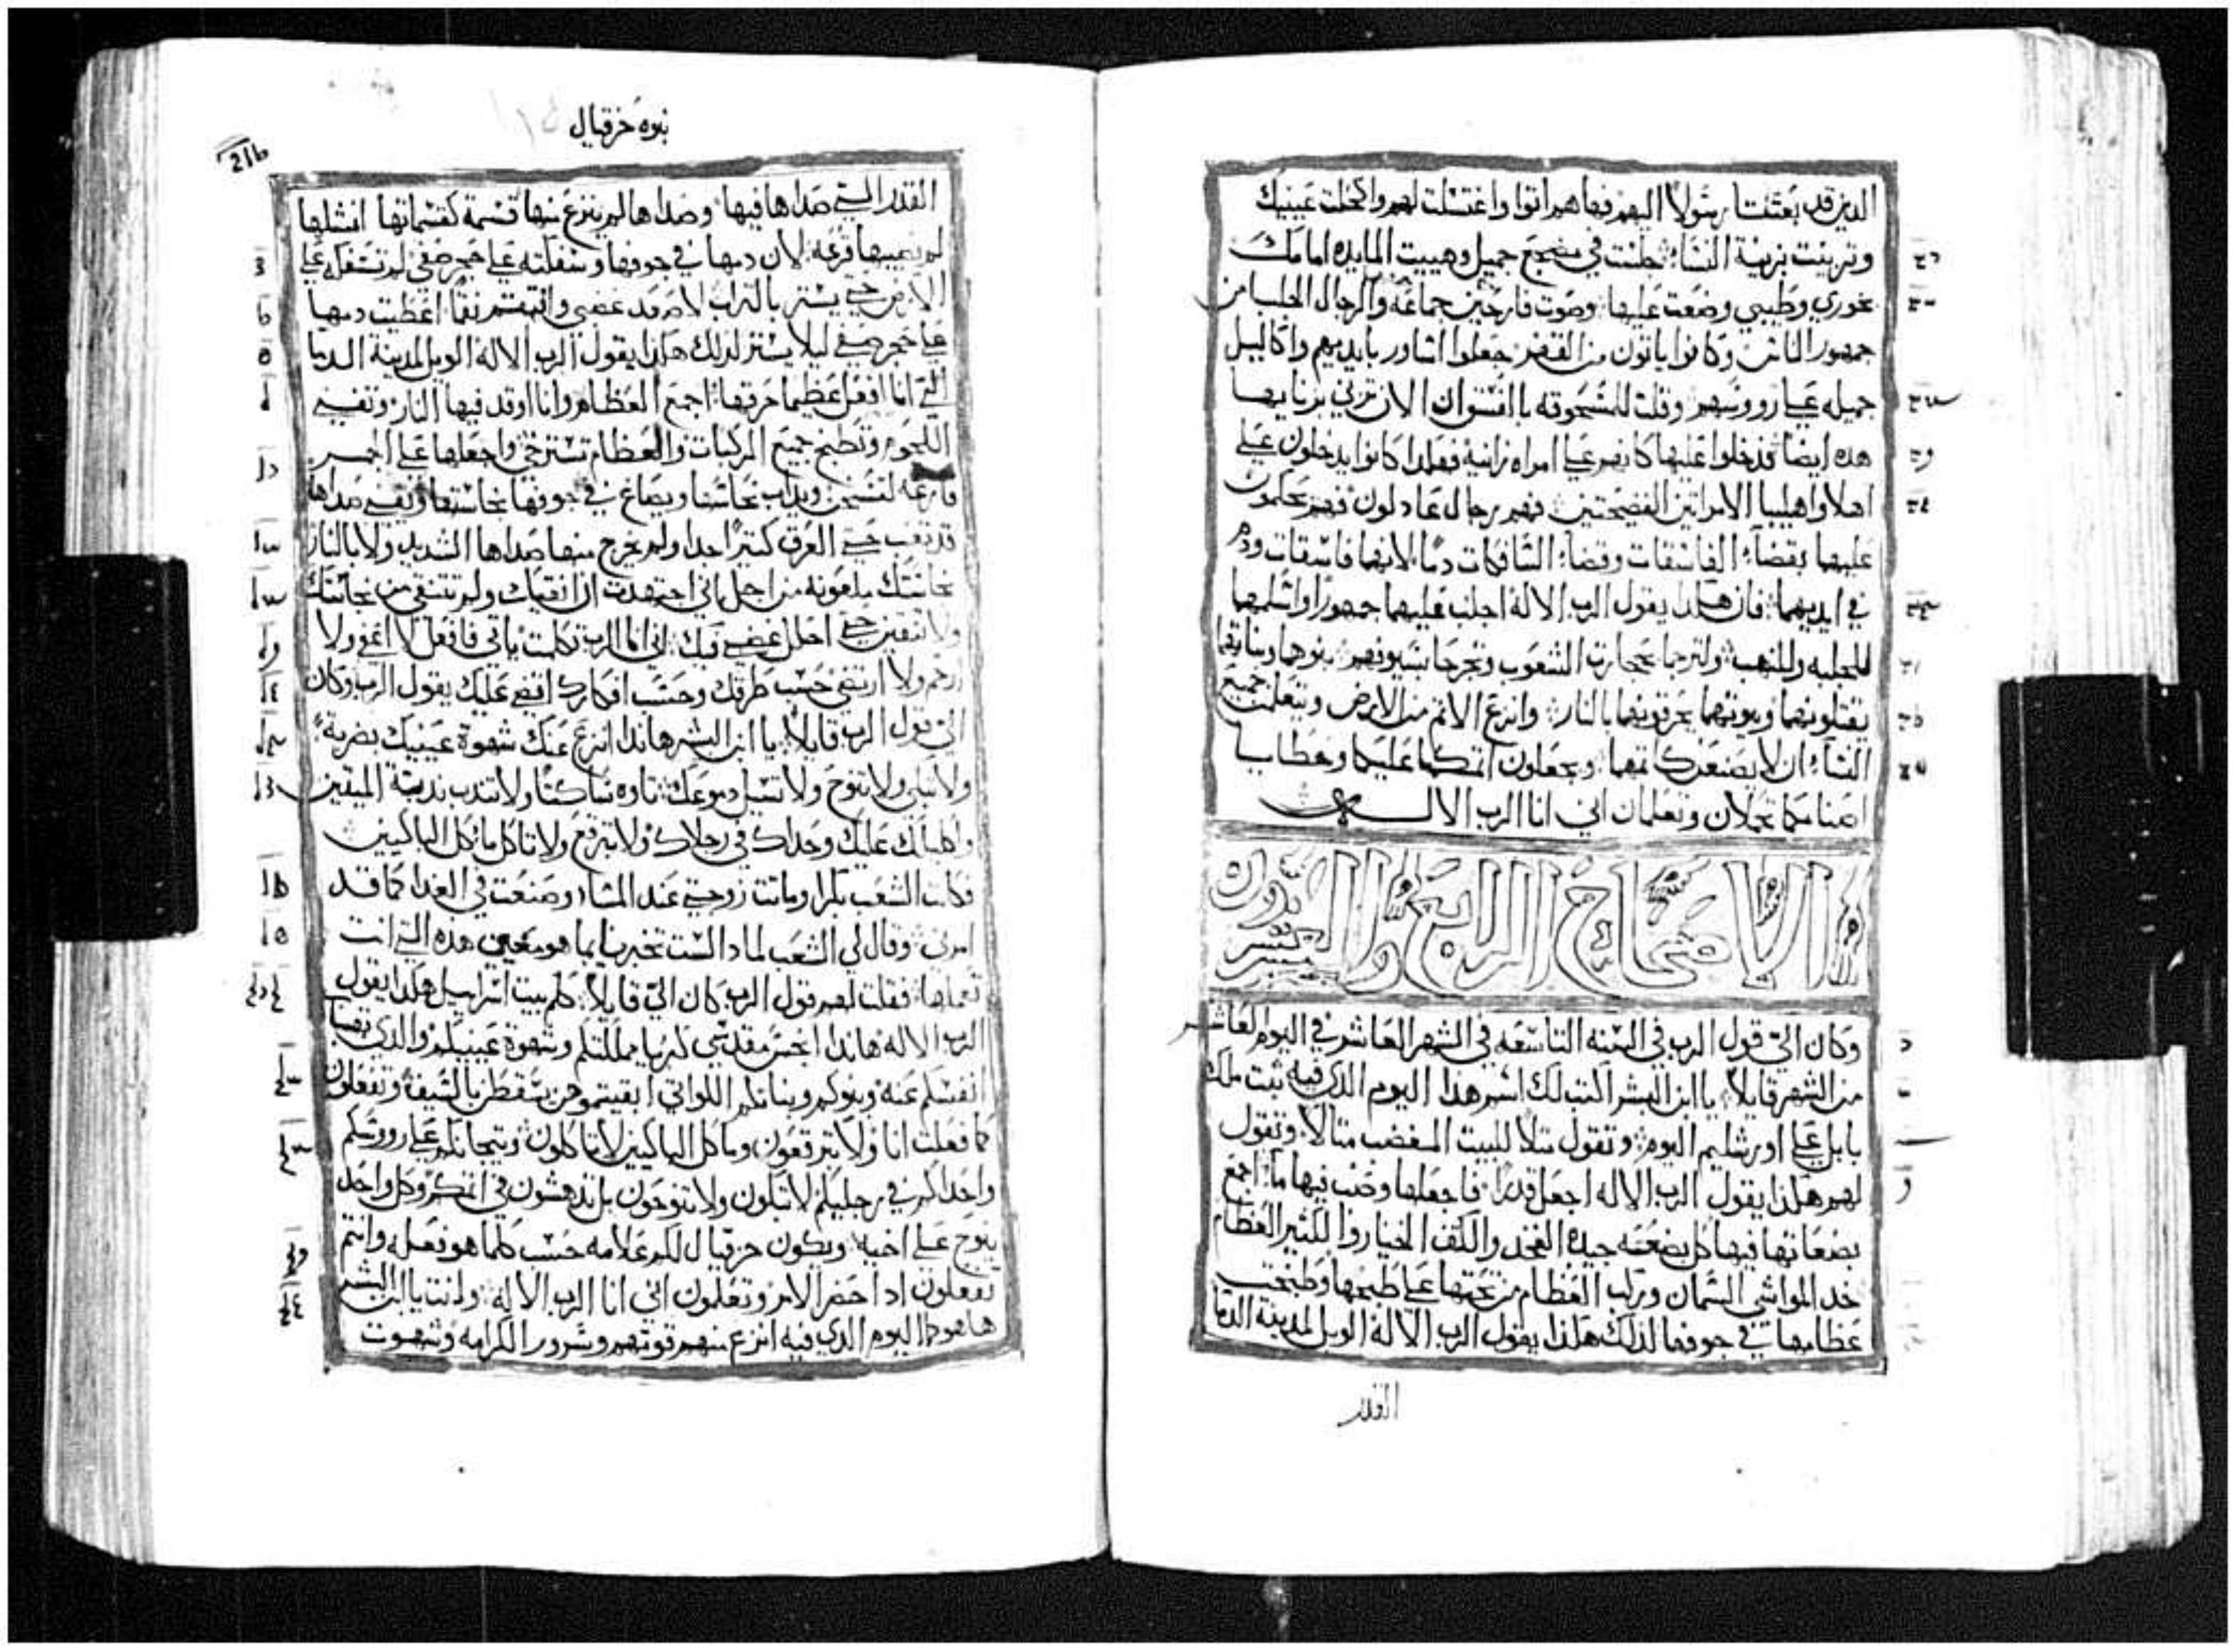 الدين قد بعثتا رسولاً اليهم فهاهم اتوا واغتسلت لهم واكحلت عينيك
وتزينت بزينة النساء جلست في مضجع جميل وهييت المايده امامك
بخوري وطيبي وضعت عليها وصوت فارحين جماعه والرجال الجلبا من
جمهور الناس وكانوا ياتون من القفر جعلوا اساور بايديهم واكاليل
جميله علي رووسهم وقلت للمسحوقه بالفسق ان الان تزني بزنايها
هده ايضاً فدخلوا عليها كانهم علي امراه زانية فهكدا كانوا يدخلون علي
اهلا واهليبا الامراتين الفضيحتين فهم رجال عادلون فهم يحكمون
عليهما بقضاء الفاسقات وقضاء السافكات دماً لانهما فاسقات ودم
في ايديهما فان هكدا يقول الرب الاله اجلب عليهما جمهوراً واسلمهما
للجلبه وللنهب ولترجما بحجارة الشعوب وتجرحا بسيوفهم بنوهما وبناتهما
يقتلونهما وبيوتهما يحرقونهما بالنار وانزع الاثم من الارض ويتعلمن جميع
النساء ان لا يصنعن كاتمهما ويجعلون اتمكما عليكما وخطايا
اصنامكما تحملان وتعلمان اني انا الرب الاله
الاصحاح الرابع والعشرون
وكان الي قول الرب في السنه التاسعه في الشهر العاشر في اليوم العاشر
من الشهر قايلاً يا ابن البشر اكتب لك اسم هدا اليوم الدي فيه تبت ملك
بابل علي اورشليم اليوم وتقول متلا للبيت المغضب متالاً وتقول
لهم هكذا يقول الرب الاله اجعل قدراً فاجعلها وصب فيها ماء اجمع
بضعاتها فيها كل بضعه جيده الفخد والكتف الخيار والكثير العظام
خد المواشي السمان وركب العظام من تحتها علي طبخها وطبخت
عظامها في جوفها لذلك هكذا يقول الرب الاله الويل لمدينة الدما
القدر
نبوه حزقيال
القدر التي صداها فيها وصداها لم ينزع منها قسمة كقسماتها انشلها
لم تصيبها قرعه لان دمها في جوفها وسفكته علي حجر صفي لم تسفكه علي
الارض حتي يستر بالتراب لاصعد غضبي وانتقم نقماً اعطيت دمها
علي حجر صفي ليلا يستتر لدلك هكذا يقول الرب الاله الويل لمدينة الدما
التي انا افعل عظيما حرقها اجمع العظام وانا اوقد فيها النار وتفني
اللحوم وتطبخ جميع المركبات والعظام تسترخي واجعلها علي الجمر
فارغه لتسخن ويداب نحاسها ويصاغ في جوفها نجاستها ويفني صداها
قد تعب حتي العرق كتيراً جدا ولم يخرج منها صداها الشديد ولا بالنار
نجاستك ملعونه من اجل اني اجتهدت ان انقيك ولم تتنقي من نجاستك
ولا تنقين حتي احلل غضبي فيك اني انا الرب تكلمت ياتي فافعل لا اعفي ولا
ارحم ولا ارتضي حسب طرقك وحسب افكارك اقضي عليك يقول الرب وكان
الي قول الرب قايلاً يا ابن البشر هاندا انزع عنك شهوة عينيك بضربة
ولا تبكي ولا تنوح ولا تسيل دموعك تاوه ساكتاً ولا تندب ندبة الميتين
واكليلك عليك وحداك في رجلاك ولا تبرقع ولا تاكل ماكل الباكيين
فكلمت الشعب بكرا وماتت زوجتي عند المساء وصنعت في الغدا كما قد
امرني وقال لي الشعب لمادا لست تخبرنا بما هو معني هده التي انت
تعملها فقلت لهم قول الرب كان الي قايلاً كلم بيت اسراييل هكذا يقول
الرب الاله هاندا انجس مقدسي كبريا مملكتكم وشهوة عينيكم والدي تفيا
انفسكم عنه وبنوكم وبناتكم اللواتي ابقيتموهن يسقطن بالسيف وتفعلون
كما فعلت انا ولا تبرقعون وماكل الباكيين لا تاكلون وتيجانكم علي رووسكم
واحداكم في رجليكم لا تبكون ولا تنوحون بل تدهشون في اتمكم وكل واحد
ينوح علي اخيه ويكون حزقيال لكم علامه حسب كلما هو فعله وانتم
تفعلون ادا حضر الامر وتعلمون اني انا الرب الاله وانت يا ابن البشر
ها هودا اليوم الدي فيه انزع منهم قوتهم وسرور الكرامه وشهوت